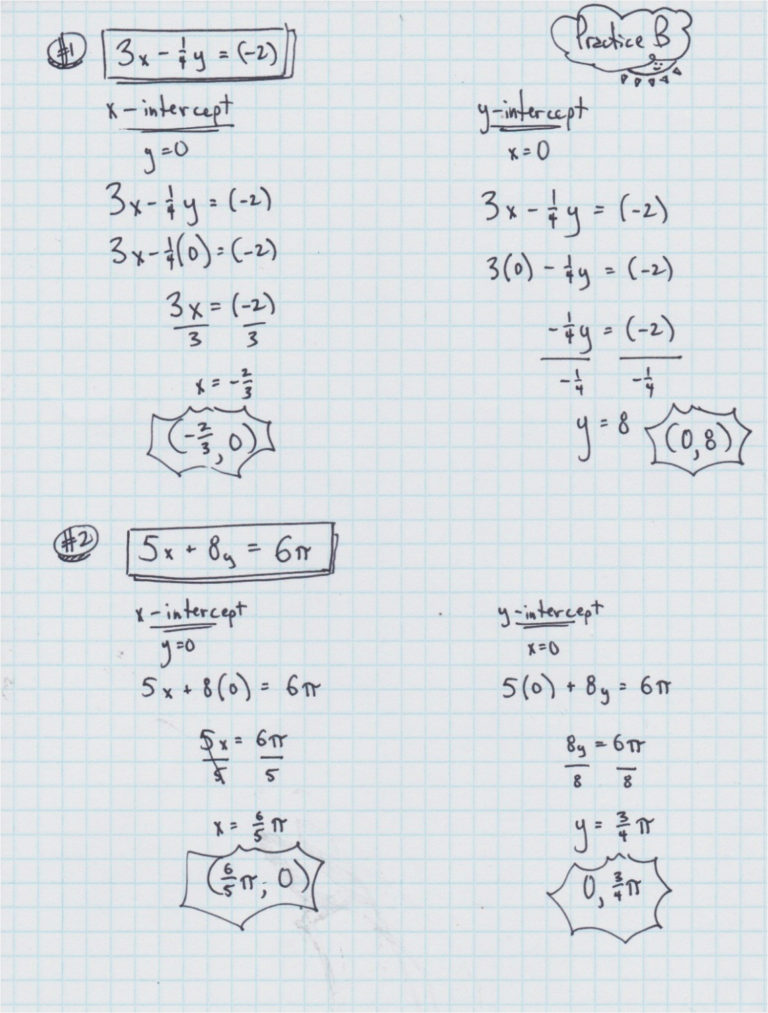 Practice B
#1 3x - 1/4 y = (-2)
x-intercept
y=0
3x - 1/4 y = (-2)
3x - 1/4 (0) = (-2)
3x = (-2)
3 3
x = -2/3
(-2/3, 0)
y-intercept
x=0
3x - 1/4 y = (-2)
3(0) - 1/4 y = (-2)
-1/4 y = (-2)
-1/4 -1/4
y = 8 (0,8)
#2 5x + 8y = 6π
x-intercept
y=0
5x + 8(0) = 6π
5x = 6π
5 5
x = 6/5 π
(6/5 π, 0)
y-intercept
x=0
5(0) + 8y = 6π
8y = 6π
8 8
y = 3/4 π
0, 3/4 π